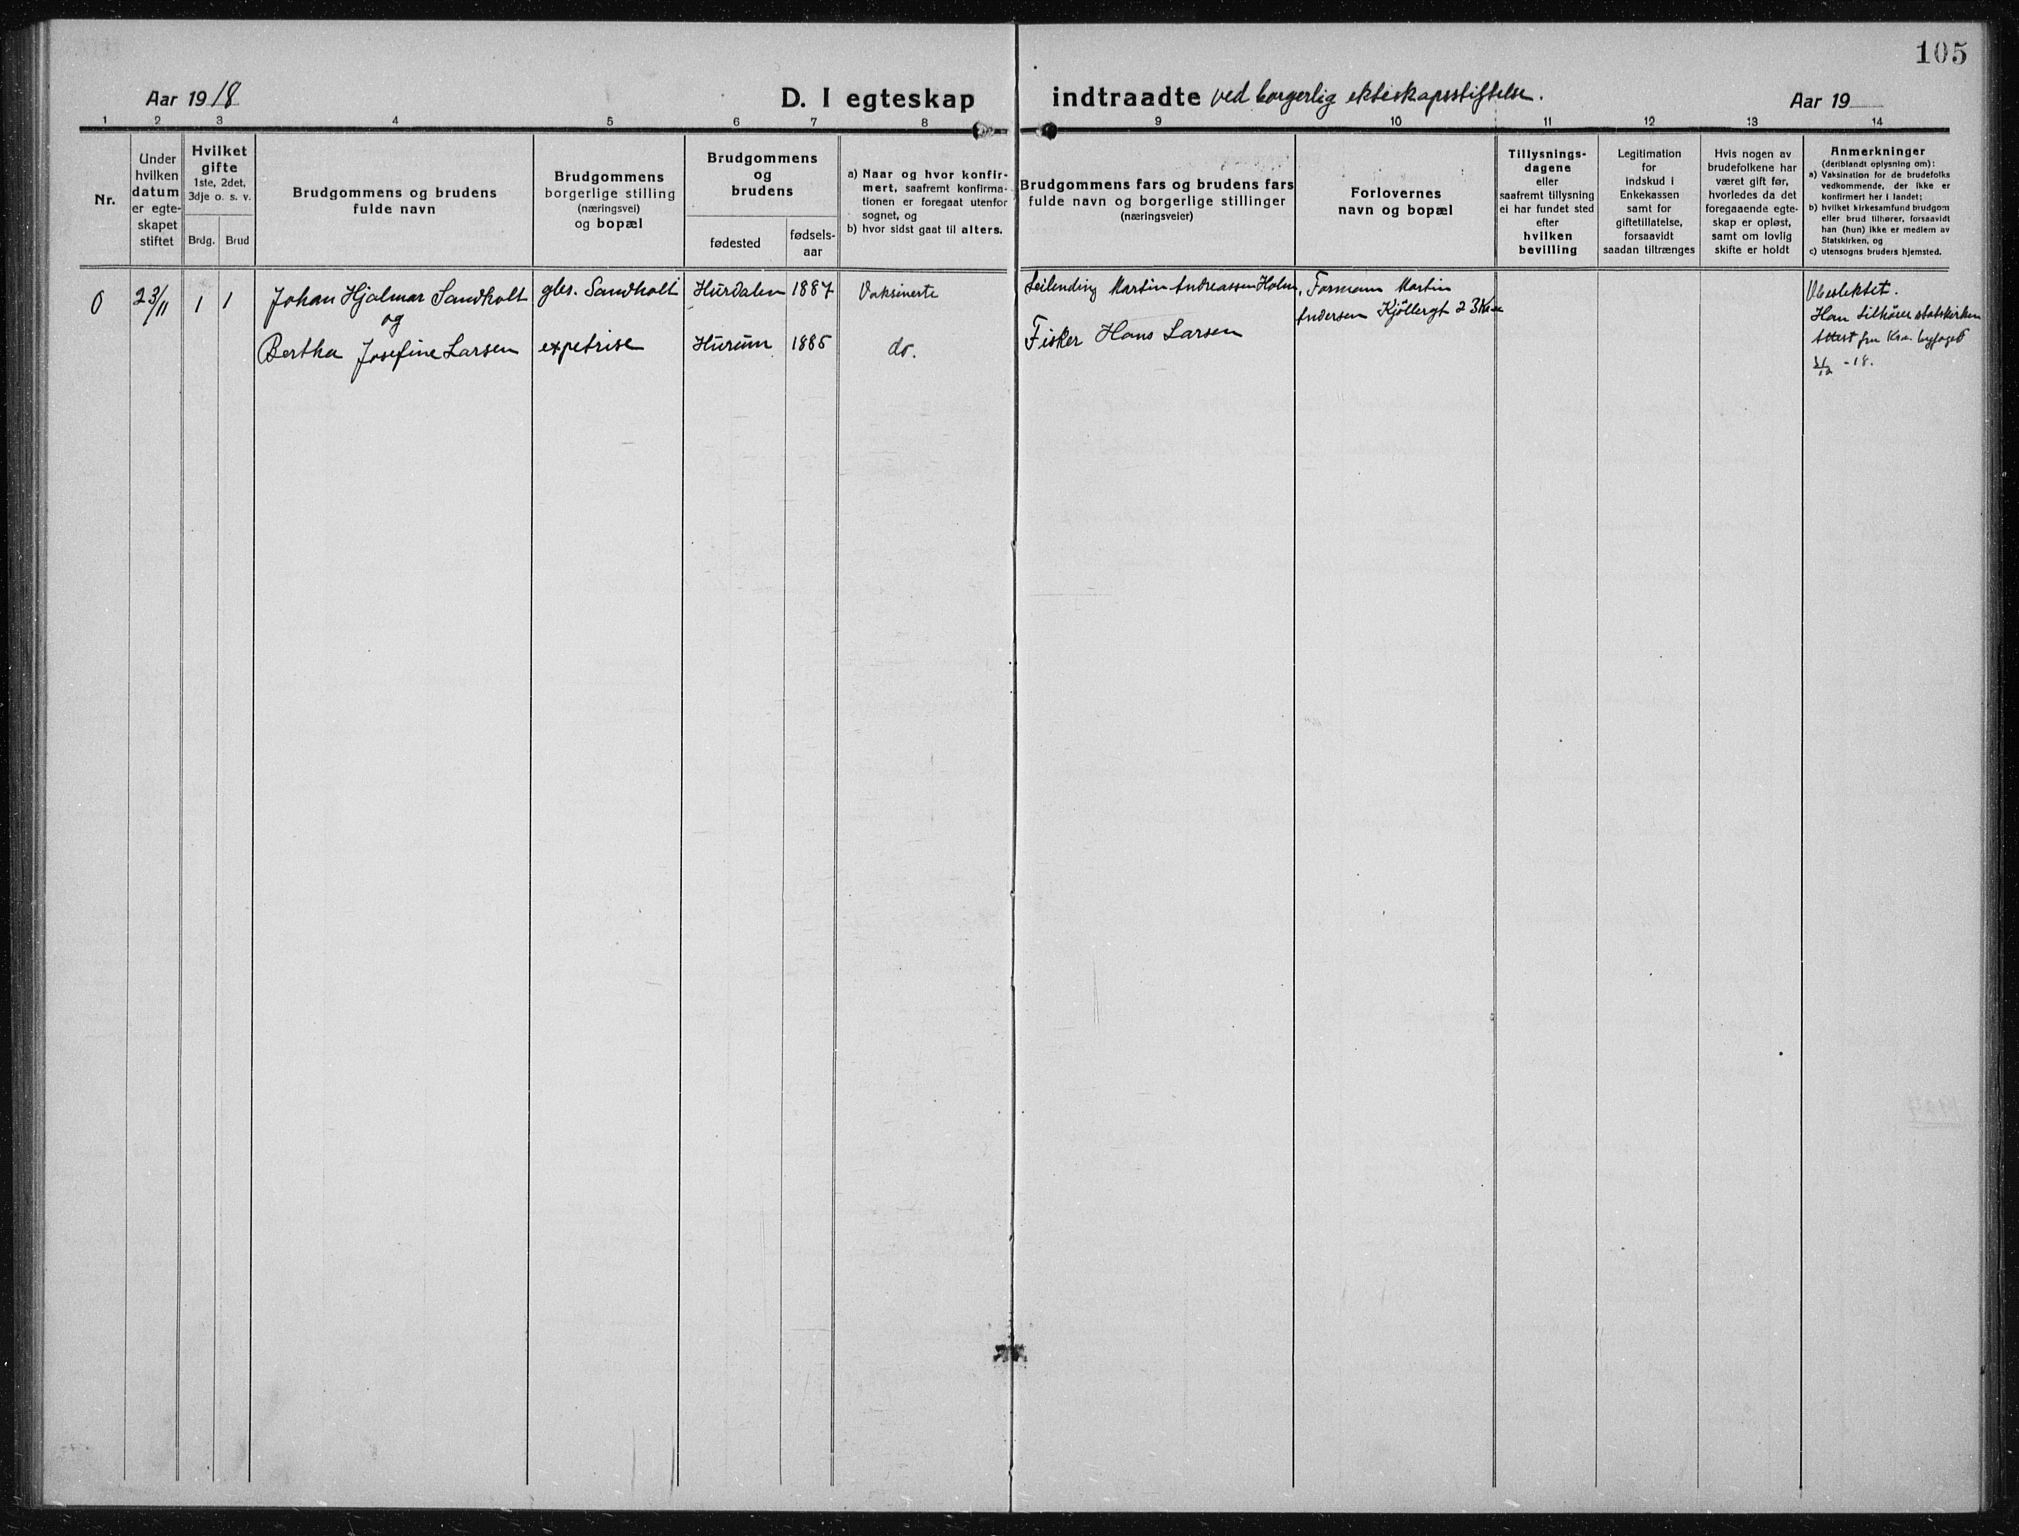 105
Aar 1918
D. I egteskap indtraadte ved borgerlig ekteskapsstiftelse.
Aar 19
1 2 3 4 5 6 7 8 9 10 11 12 13 14
Nr.
Under
hvilken
datum
er egte-
skapet
stiftet
Hvilket
gifte
1ste, 2det,
3dje o. s. v.
Brdg. Brud
Brudgommens og brudens
fulde navn
Brudgommens
borgerlige stilling
(næringsvei)
og bopæl
Brudgommens
og
brudens
fødested
fødsels-
aar
a) Naar og hvor konfir-
mert, saafremt konfirma-
tionen er foregaat utenfor
sognet, og
b) hvor sidst gaat til alters.
Brudgommens fars og brudens fars
fulde navn og borgerlige stillinger
(næringsveier)
Forlovernes
navn og bopæl
Tillysnings-
dagene
eller
saafremt tillysning
ei har fundet sted
efter
hvilken
bevilling
Legitimation
for
indskud i
Enkekassen
samt for
giftetillatelse,
forsaavidt
saadan tiltrænges
Hvis nogen av
brudefolkene har
været gift før,
hvorledes da det
foregaaende egte-
skap er opløst,
samt om lovlig
skifte er holdt
Anmerkninger
(deriblandt oplysning om):
a) Vaksination for de brudefolks
vedkommende, der ikke er
konfirmert her i landet;
b) hvilket kirkesamfund brudgom
eller brud tilhører, forsaavidt
han (hun) ikke er medlem av
Statskirken, og
c) utensogns bruders hjemsted.
0
23/11
1
1
Johan Hjalmar Sandholt
og
Bertha Josefine Larsen
gbs. Sandholt
expetrise
Hurdalen 1887
Hurum 1885
Vaksinerte
do.
Leilending Martin Andreassen Holm,
Fisker Hans Larsen
Formann Martin
Andersen Kjølbergt 23
Ubeslektet.
Han tilhører statskirken
Attest fra Kra. byfoged
-18.